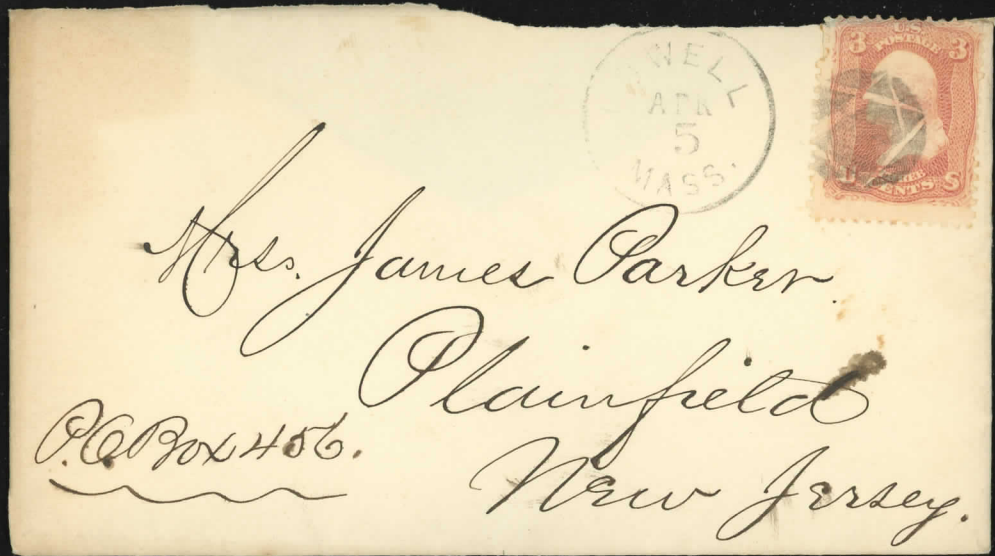 LOWELL
APR
5
MASS.
U.S.
3 POSTAGE 3
U CENTS S
Mrs. James Parker.
Plainfield
New Jersey.
P.O Box 456.